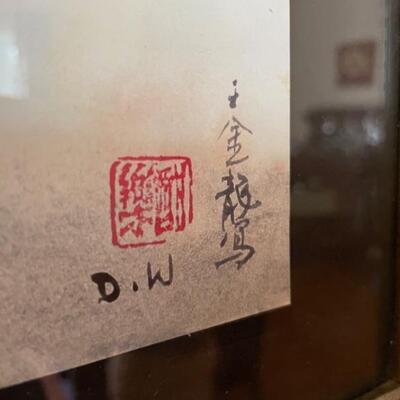 王金龍寫
D.W